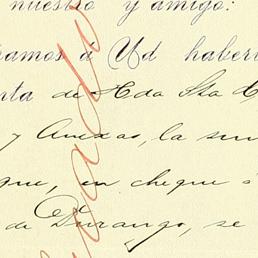 nuestro y amigo:
ramos á Ud haber
nta de Hda Sta
y Anexas, la su
que, en cheque
de Durango, se